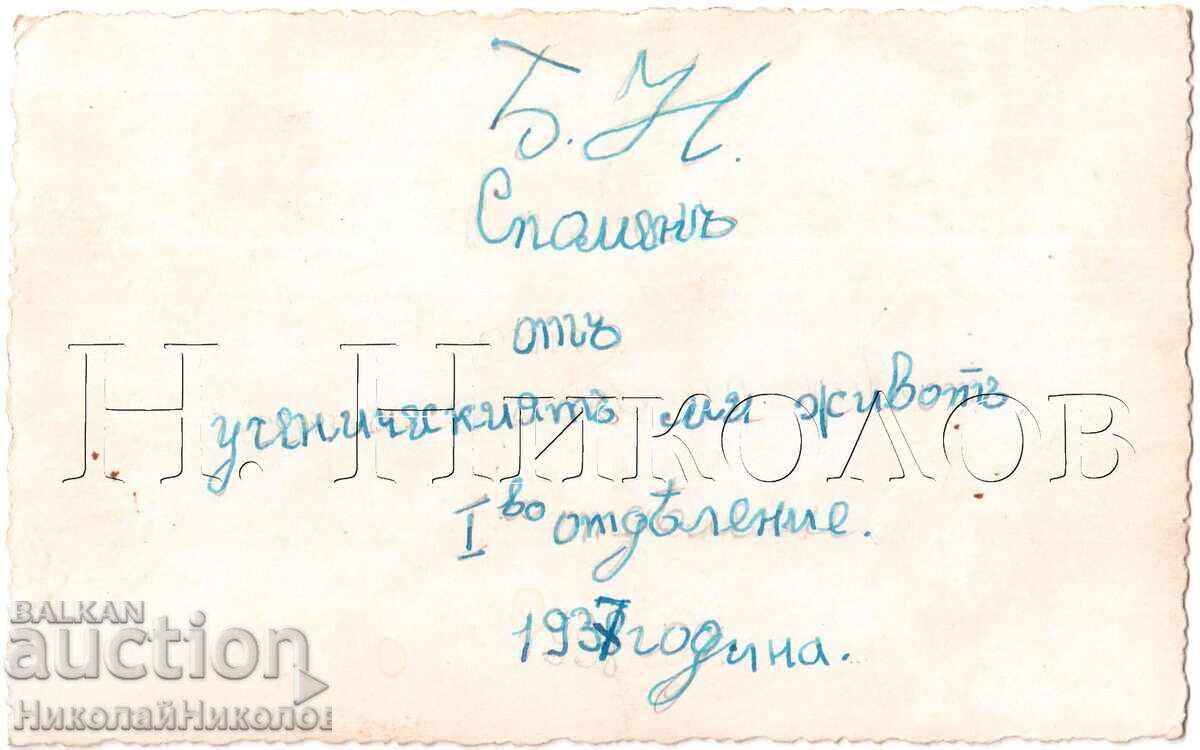 Б. Н.
Споменъ
отъ
ученическиятъ ми животъ
I во отдѣление.
1937 година.
Н. Николов
BALKAN
auction
НиколайНиколов